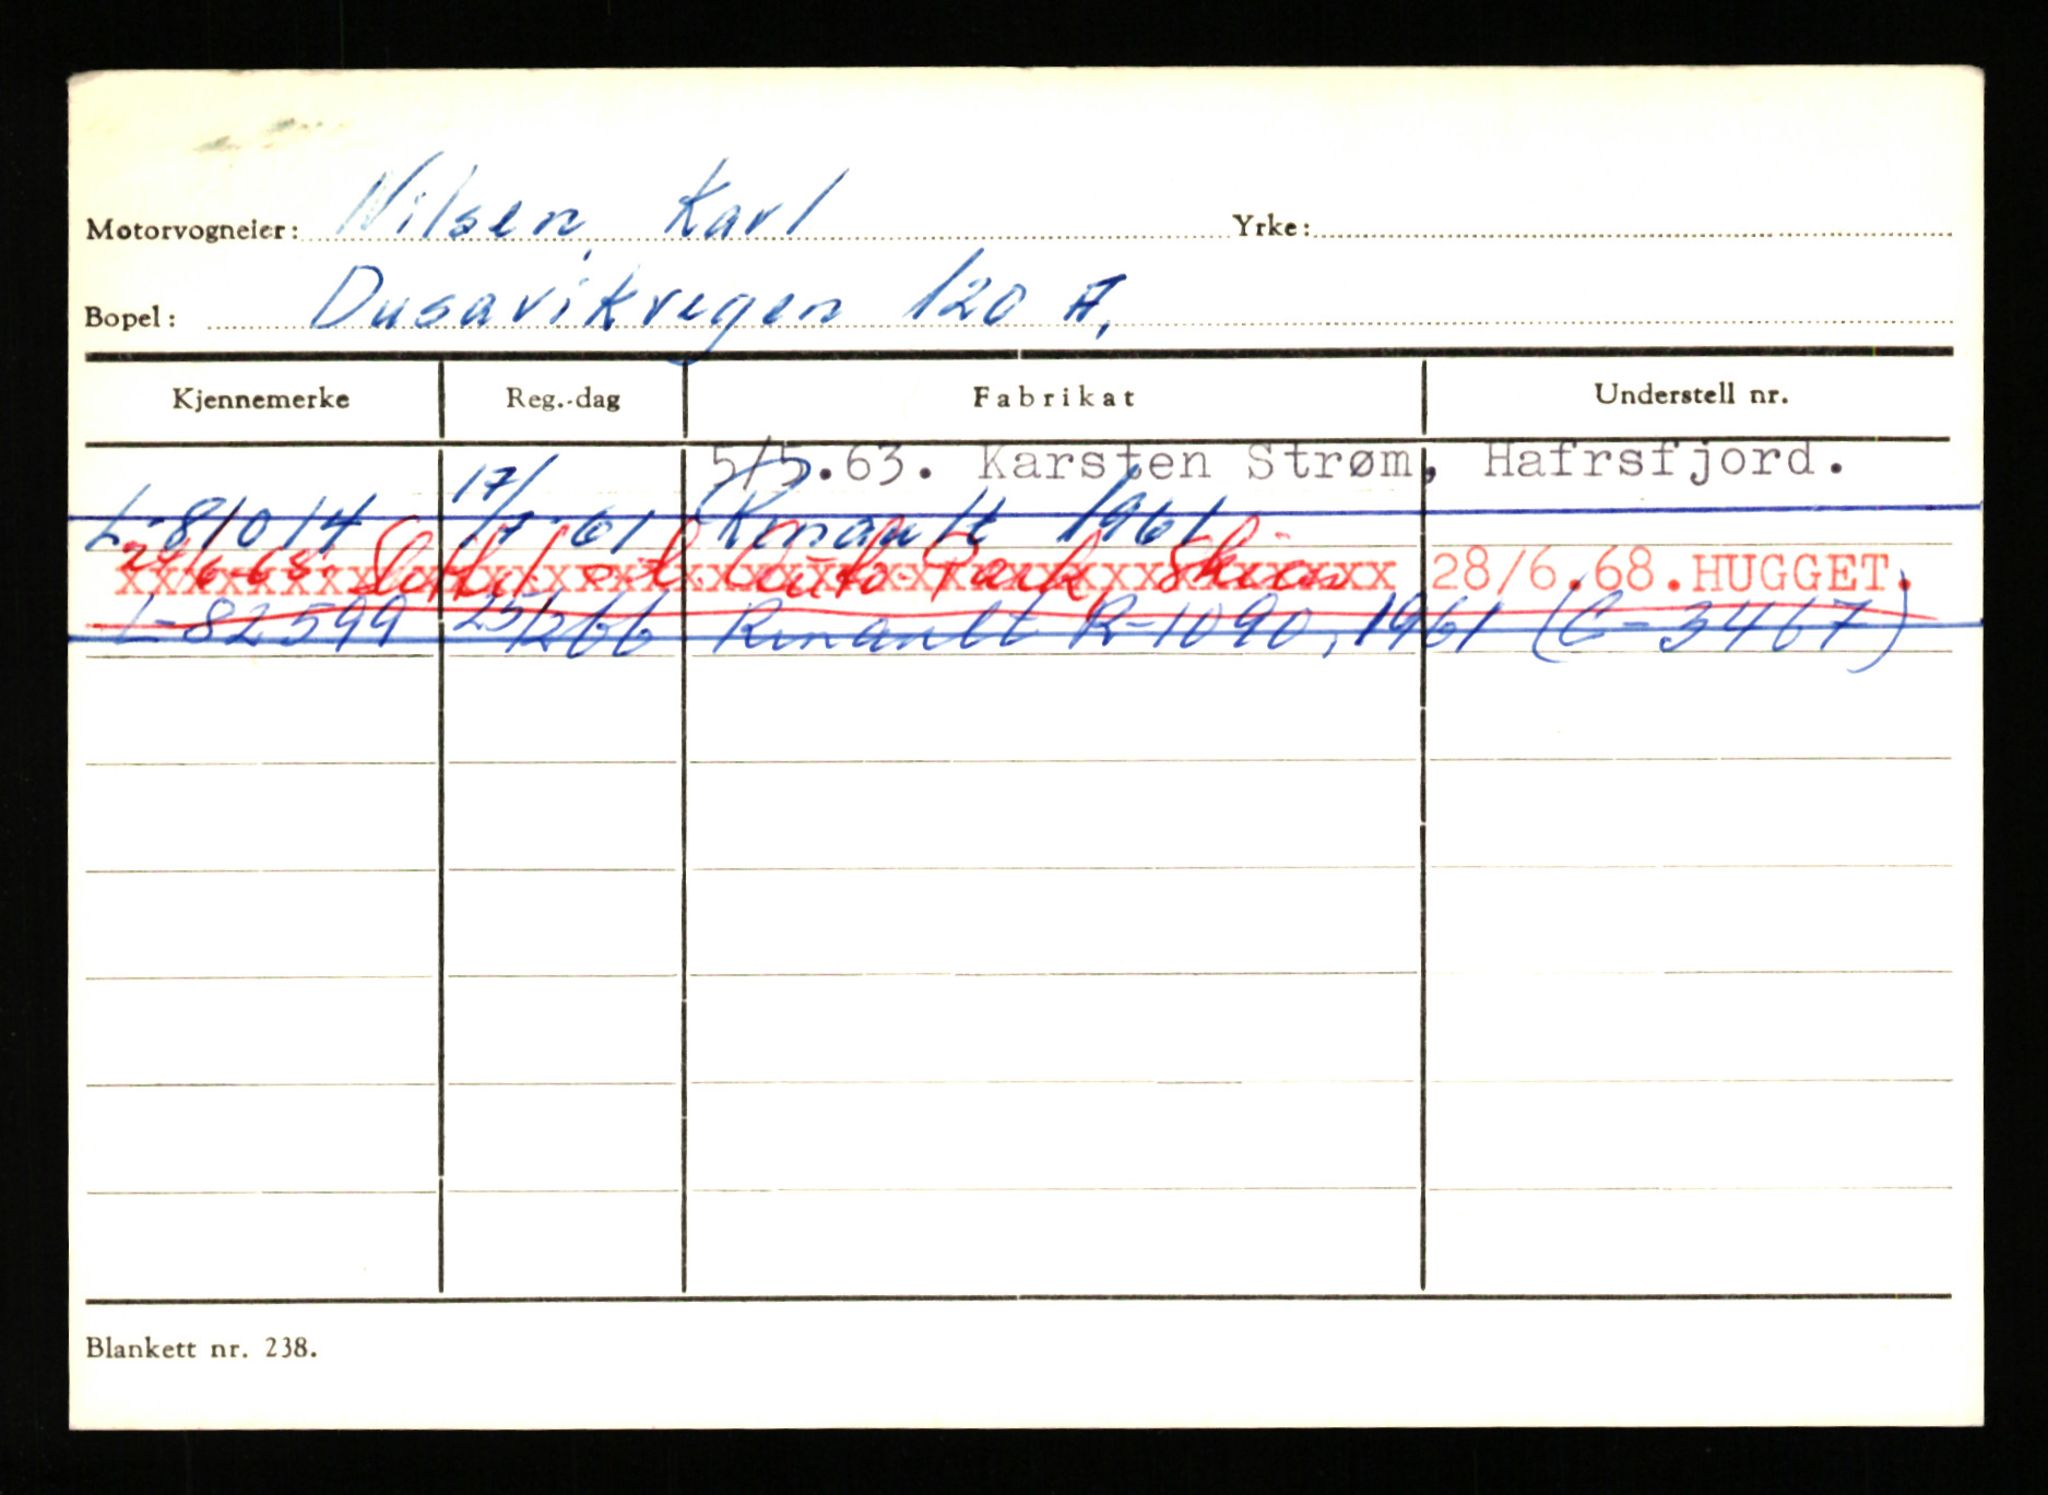 Motorvogneier: Nilsen, Karl Yrke:
Bopel: Dusavikvegen 120 A,
Kjennemerke Reg.-dag Fabrikat Understell nr.
5/5.63. Karsten Strøm, Hafrsfjord.
L-81014 17/7-61 Renault 1961
28/6.68.HUGGET.
L-82599 25/266 Renault R-1090, 1961 (C-3467)
Blankett nr. 238.